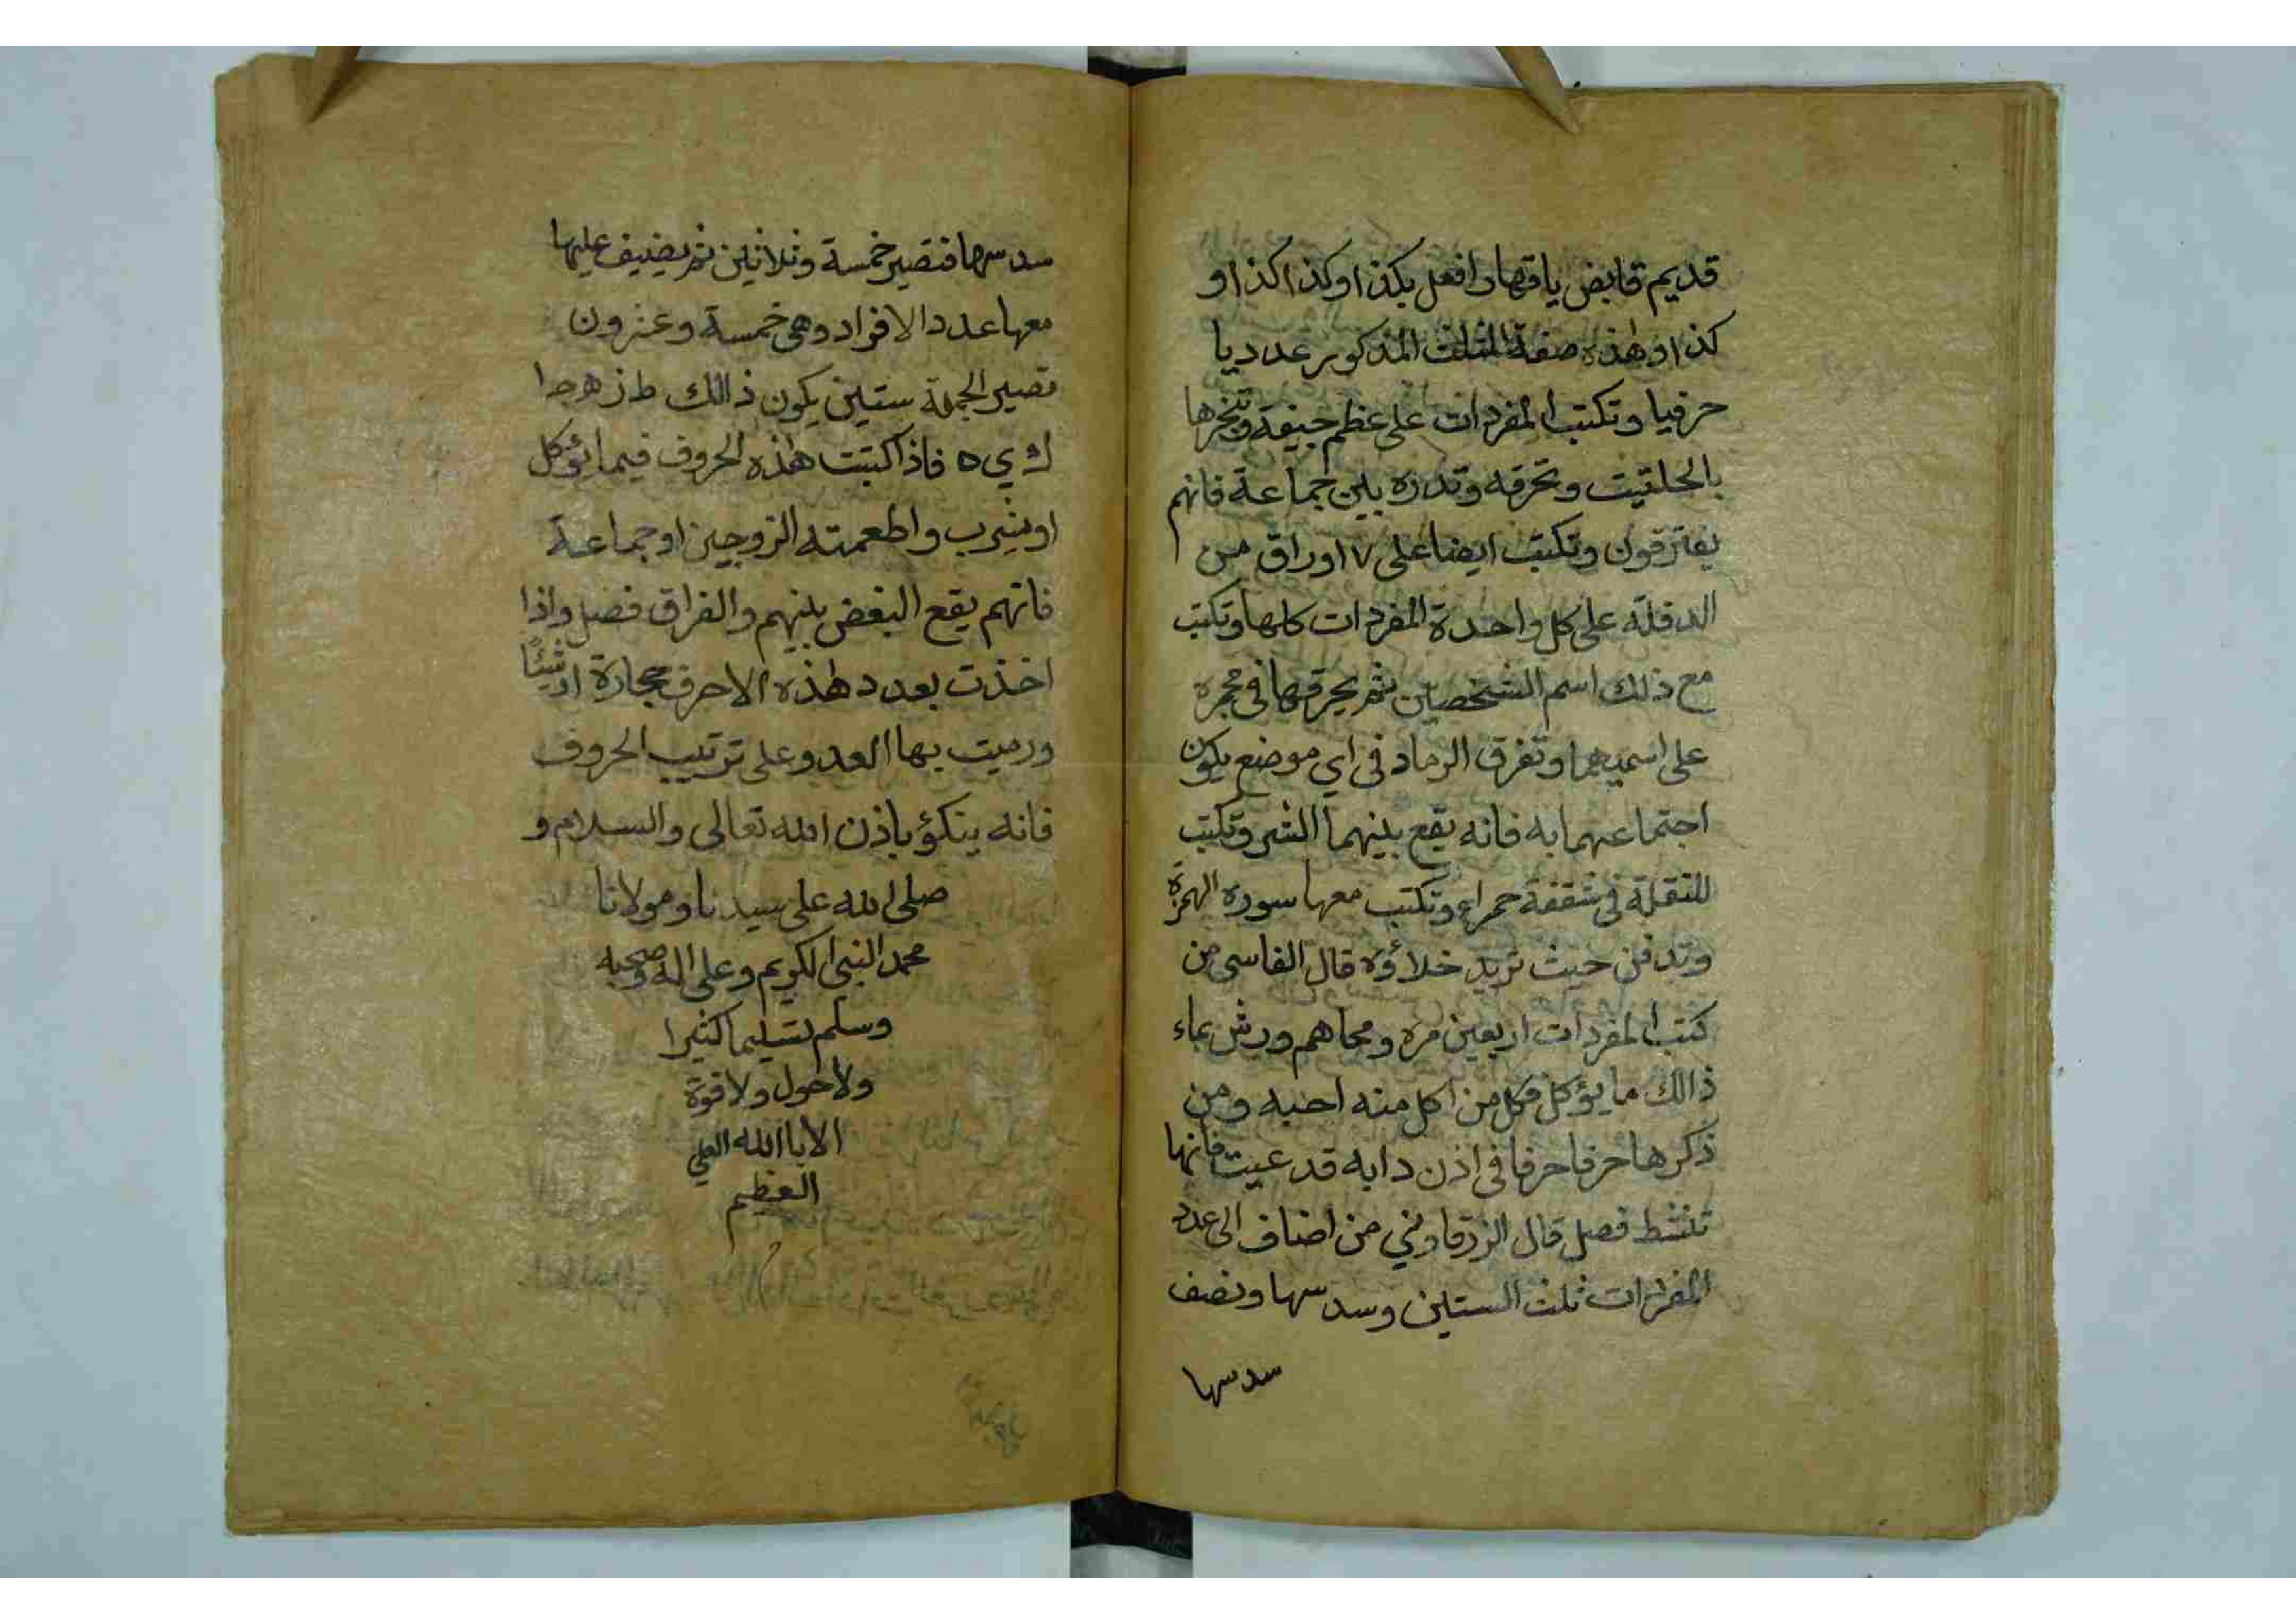 قديم قابض ياقهار افعل بكذا وكذا كذا و
كذا وهذه صفة المثلث المذكور عدديا
حرفيا وتكتب المفردات على عظم جيفة وتبخرها
بالحلتيت وتحرقه وتدره بين جماعة فانهم
يفترقون وتكتب ايضا على ٧ اوراق من
الدفلة على كل واحدة المفردات كلها وتكتب
مع ذلك اسم الشخصين ثم يحرقها في مجمرة
على اسميهما وتفرق الرماد في اي موضع يكون
اجتماعهما به فانه يقع بينهما الشر وتكتب
للنقلة في شقفة حمراء وتكتب معها سورة الهمزة
وتدفن حيث تريد خلاؤه قال الفاسي من
كتب المفردات اربعين مره ومحاهم ورش بماء
ذالك ما يؤكل فكل من اكل منه احبه ومن
ذكرها حرفا حرفا في اذن دابه قد عيت فانها
تنشط فصل قال الزرقاوني من اضاف الى عدد
المفردات ثلث الستين وسدسها ونصف
سدسها
سدسها فتصير خمسة وثلاثين ثم يضيف عليها
معها عدد الافراد وهي خمسة وعشرون
تصير الجملة ستين يكون ذالك ط ز ه ج ا
ك ي ه فاذا كتبت هذه الحروف فيما يؤكل
او يشرب واطعمته الزوجين او جماعة
فانهم يقع البغض بينهم والفراق فصل واذا
اخذت بعدد هذه الاحرف حجارة او شيئا
ورميت بها العدو على ترتيب الحروف
فانه ينكؤ باذن الله تعالى والسلام و
صلى الله على سيدنا ومولانا
محمد النبي الكريم وعلى اله وصحبه
وسلم تسليما كثيرا
ولا حول ولا قوة
الا باالله العلي
العظيم
م